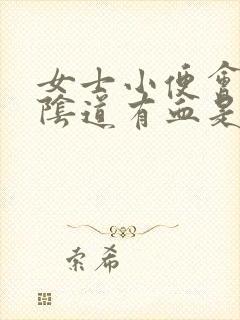 女士小便會
陰道有血是
索希